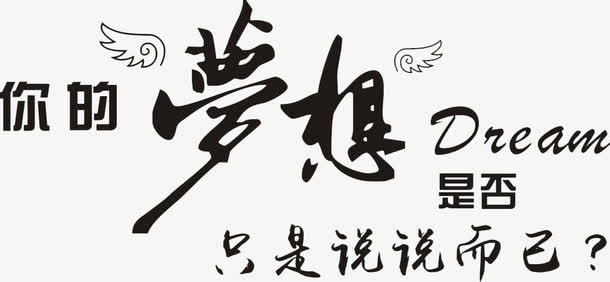 你的夢想 Dream
是否
只是说说而已？